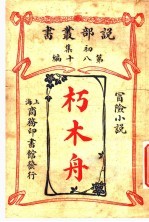 說部叢書
初集
第八十編
冒險小說
朽木舟
上海
商務印書館發行